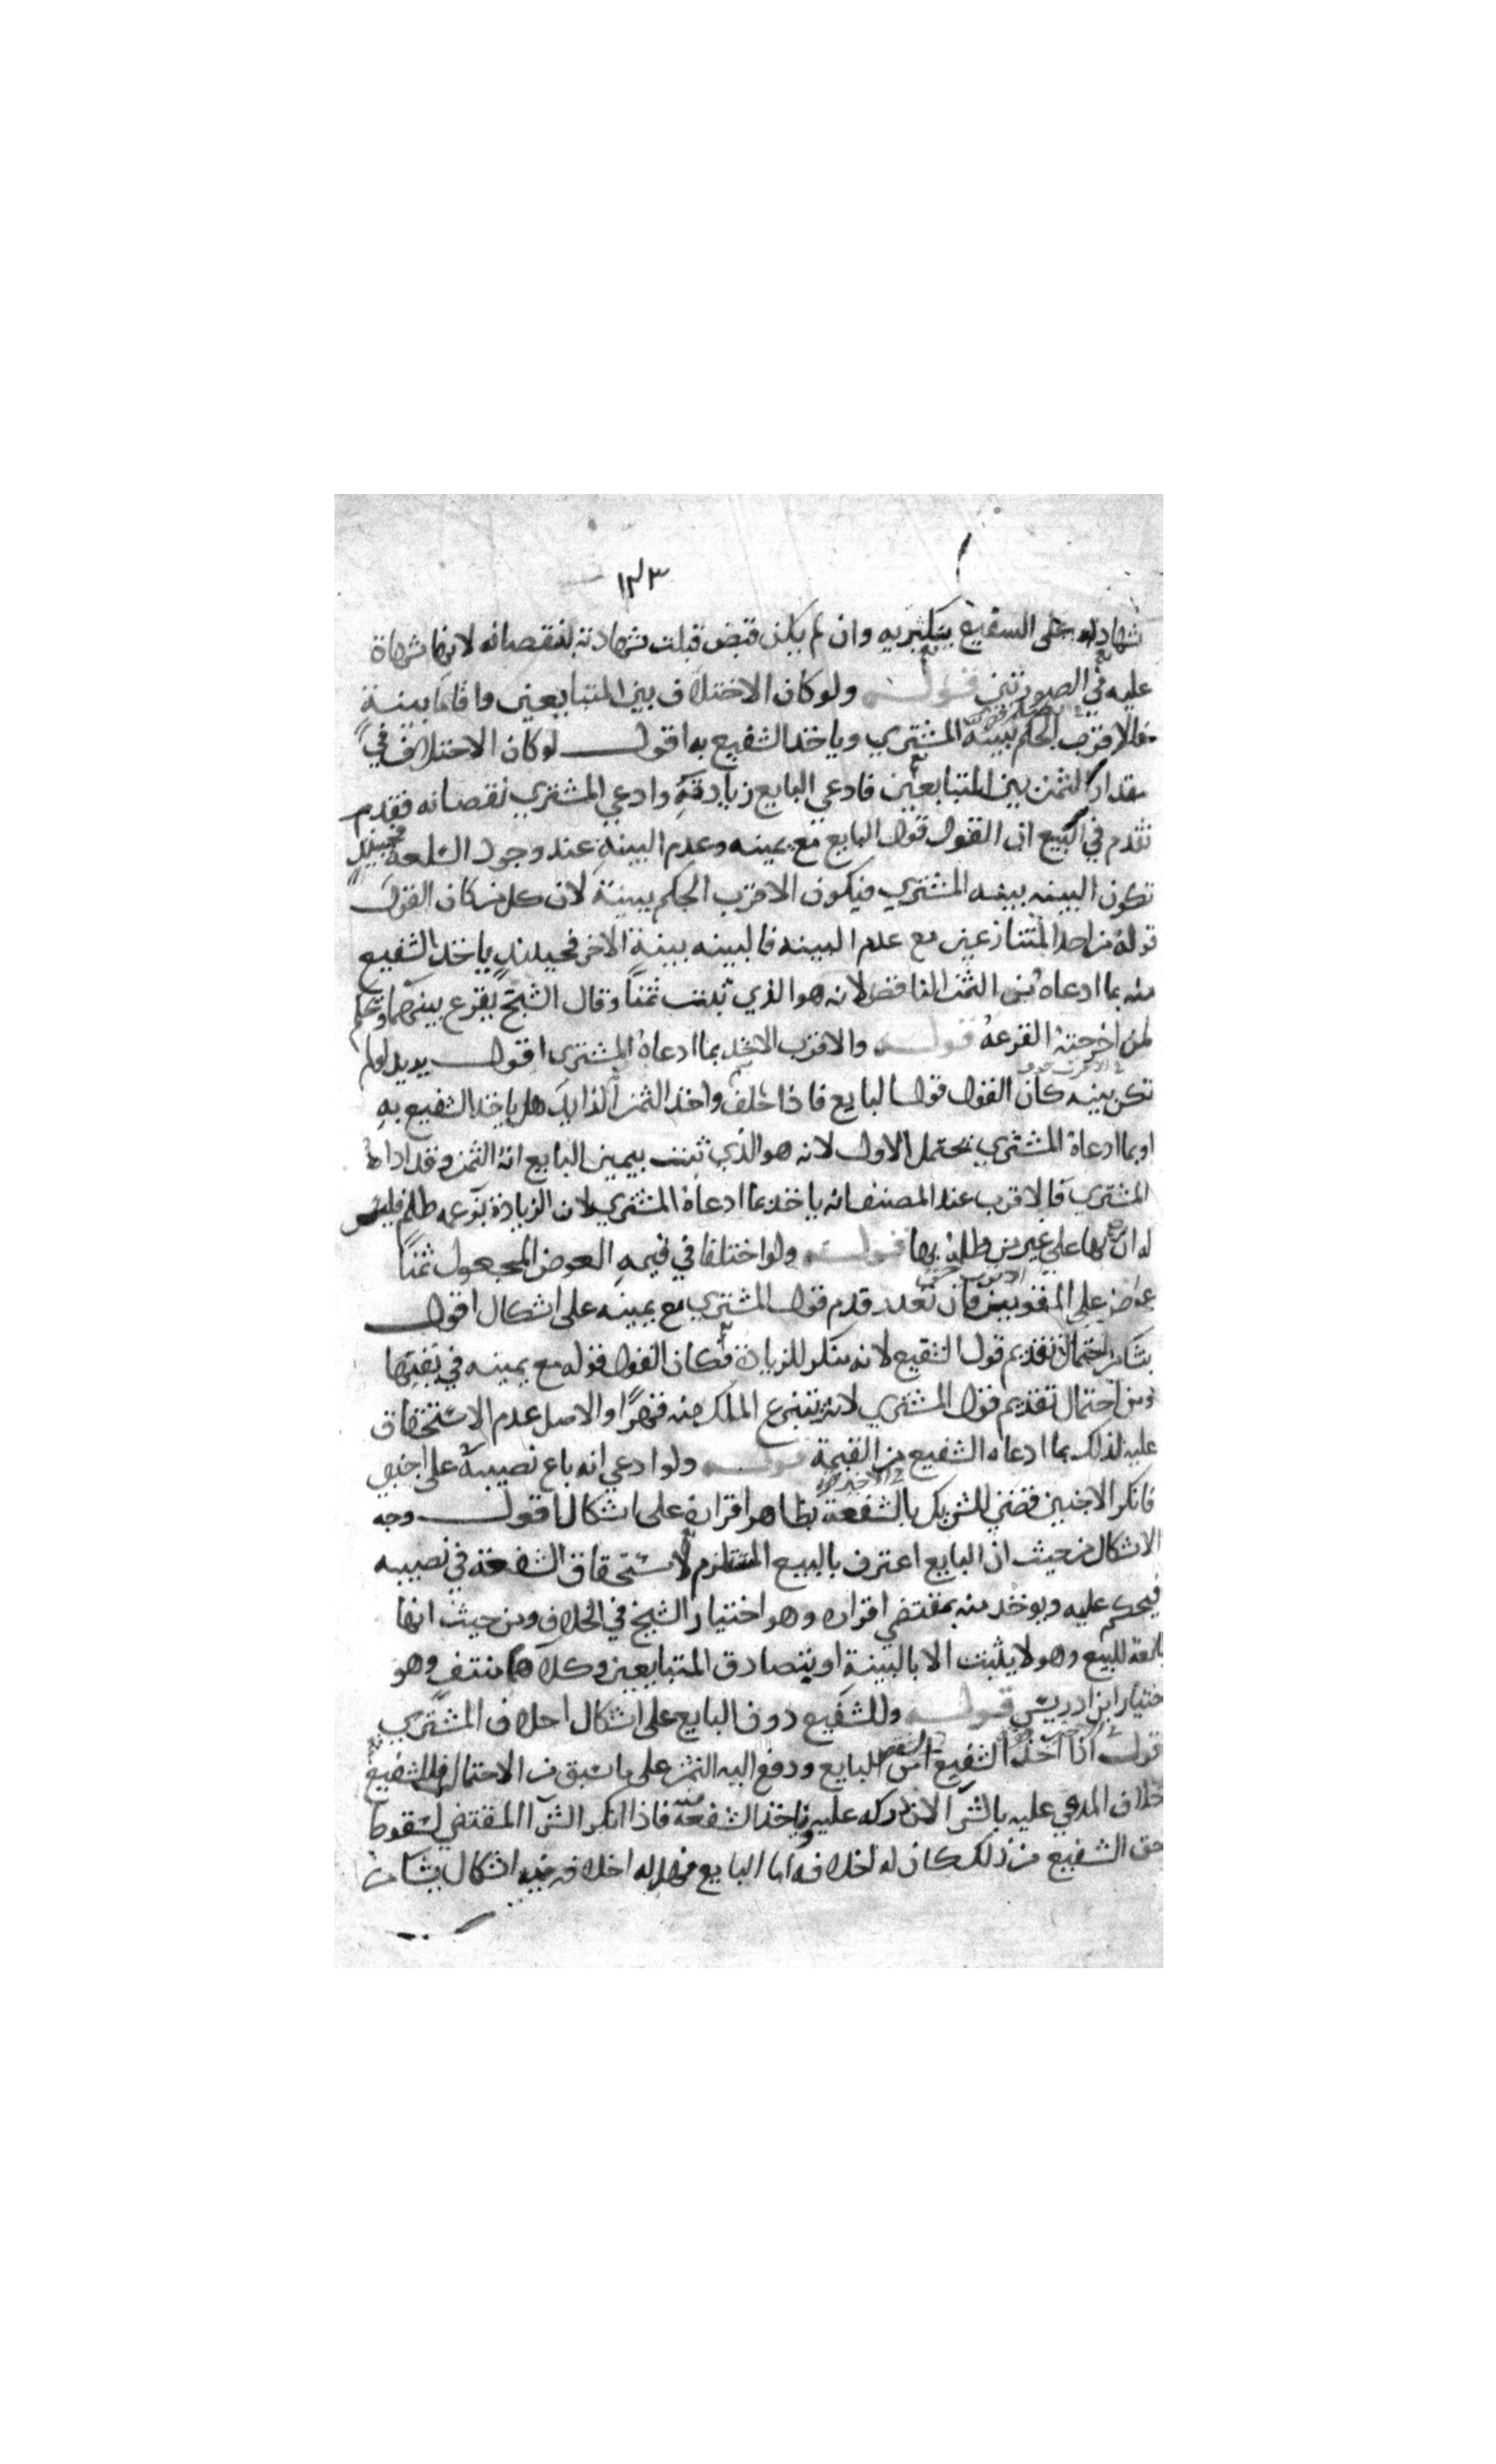 ١٣٣
شهادته على الشفيع بتكثيره وان لم يكن قبض قبلت شهادته بنقصانه لانها شهادة
عليه في الصورتين قوله ولو كان الاختلاف بين المتبايعين واقاما بينة
فالاقرب الحكم ببينة المشتري وياخذ الشفيع به اقول لو كان الاختلاف في
مقدار الثمن بين المتبايعين فادعي البايع زيادته وادعي المشتري نقصانه فقد
تقدم في البيع ان القول قول البايع مع يمينه وعدم البينة عند وجود السلعة فحينئذ
تكون البينه بينه المشتري فيكون الاقرب الحكم ببينة لان كل من كان القول
قوله من احد المتنازعين مع عدم البينه فالبينه بينة الاخر فحينئذ ياخذ الشفيع
منه بما ادعاه من الثمن الناقص لانه هو الذي ثبت ثمناً وقال الشيخ يقرع بينهما وتحكم
لمن اخرجته القرعة قوله والاقرب الاخذ بما ادعاه المشتري اقول يريد لو لم
تكن بينه كان القول قول البايع فاذا حلف واخذ الثمن الزايد هل ياخذ الشفيع به
او بما ادعاه المشتري يحتمل الاول لانه هو الذي ثبت بيمين البايع انه الثمن وقد اداه
المشتري والاقرب عند المصنف انه ياخذ بما ادعاه المشتري لان الزيادة بزعمه ظلم فليس
له ان يرجع بها على غير من ظلمه بها قوله ولو اختلفا في قيمه العوض المجعول ثمناً
عرض على المقومين فان تعذر قدم قول المشتري مع يمينه على اشكال اقول
ينشا من احتمال تقديم قول الشفيع لانه منكر للزيادة فكان القول قوله مع يمينه في نفيها
ومن احتمال تقديم قول المشتري لانه ينتزع الملك منه قهراً والاصل عدم الاستحقاق
عليه لذلك بما ادعاه الشفيع من القيمة قوله ولو ادعي انه باع نصيبه على اجنبي
فانكر الاجنبي قضي للشريك بالشفعة بظاهر اقراره على اشكال اقول وجه
الاشكال من حيث ان البايع اعترف بالبيع المستلزم لاستحقاق الشفعة في نصيبه
فيحكم عليه ويوخذ منه بمقتضي اقراره وهو اختيار الشيخ في الخلاف ومن حيث انها
تابعة للبيع وهو لا يثبت الا بالبينة او بتصادق المتبايعين وكلاهما منتف وهو
اختيار ابن ادريس قوله وللشفيع دون البايع على اشكال احلاف المشتري
اقول اذا اخذ الشفيع من البايع ودفع اليه الثمن على ما سبق من الاحتمال فللشفيع
احلاف المدعي عليه بالشرا لان دركه عليه وياخذ الشفعة منه فاذا انكر الشرا المقتضي لسقوط
حق الشفيع من ذلك كان له احلافه اما البايع فهل له احلافه فيه اشكال ينشا من